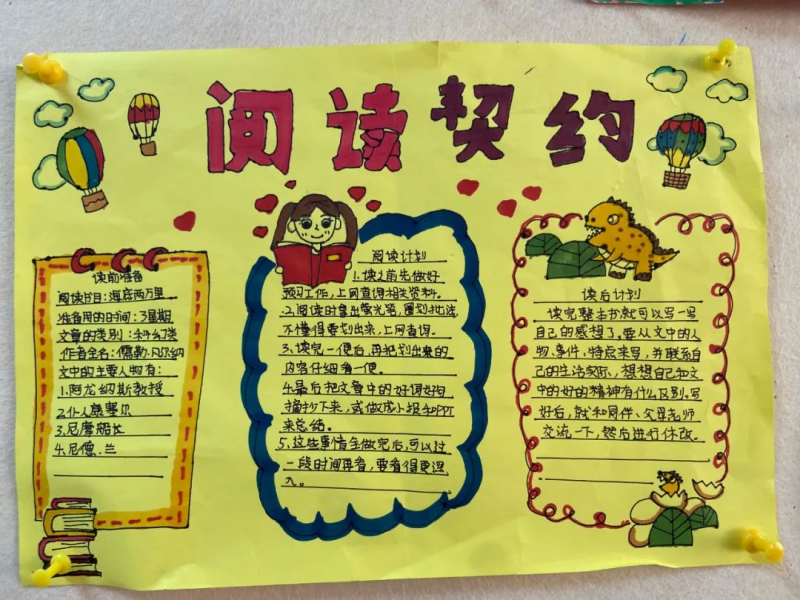 阅读契约
读前准备
阅读书目：海底两万里
准备用的时间：3星期
文章的类别：科幻类
作者全名：儒勒·凡尔纳
文中的主要人物有：
1.阿龙纳斯教授
2.仆人康塞尔
3.尼摩船长
4.尼德.兰
阅读计划
1.读之前先做好
预习工作，上网查询相关资料。
2.阅读时拿出荧光笔，圈划批注，
不懂得要划出来，上网查询。
3.读完一便后，再把划出来的
内容仔细看一便。
4.最后把文章中的好词好句
摘抄下来，或做成小报和PPT
来总结。
5.这些事情全做完后，可以过
一段时间再看，要看得更深
入。
读后计划
读完整本书就可以写一写
自己的感想了，要从文中的人
物、事件，特点来写，并联系自
己的生活实际，想想自己和文
中的好的精神有什么区别。写
好后，就和同伴、父母老师
交流一下，然后进行修改。